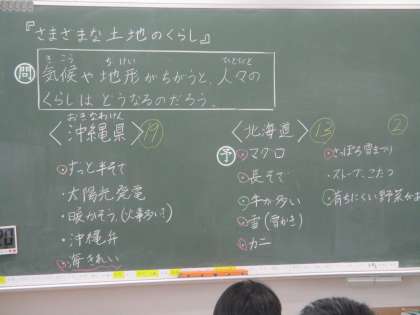 『さまざまな土地のくらし』
問
きこう ちけい ひとびと
気候や地形がちがうと、人々の
くらしはどうなるのだろう。
おきなわけん
〈沖縄県〉 19
・ずっと半そで
・太陽光発電
・暖かそう。
・沖縄弁
・海きれい
〈北海道〉 13
予
・マグロ
・長そで
・牛が多い
・雪(雪かき)
・カニ
2
・さっぽろ雪まつり
・ストーブ、こたつ
・育ちにくい野菜がある